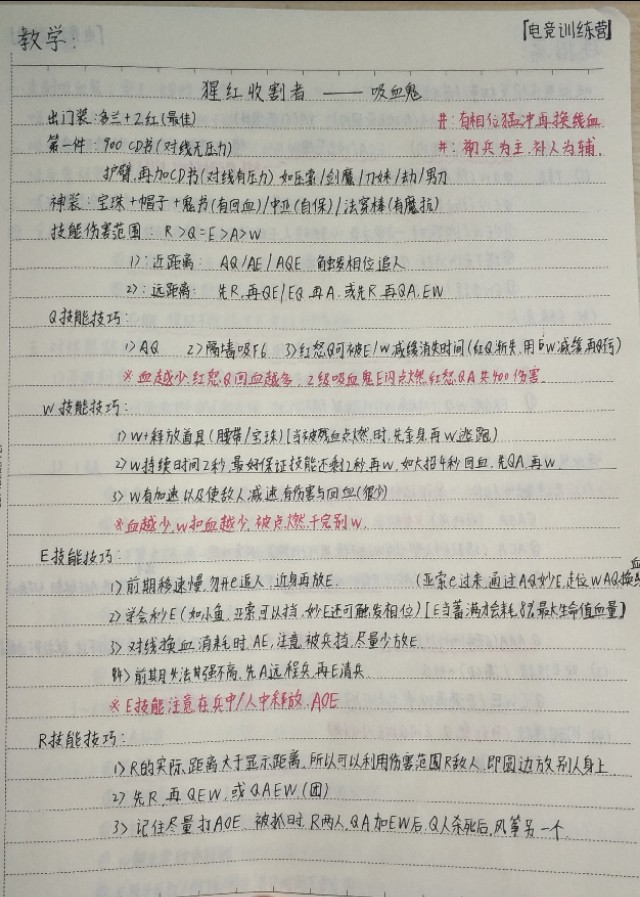 教学:
「电竞训练营」
猩红收割者 —— 吸血鬼
出门装:多兰+2红(最佳)
#:有相位猛冲再换线血
第一件:900 CD书(对线无压力)
#:朝兵为主,补人为辅.
护臂,再加CD书(对线有压力) 如压塞/剑魔/刀妹/劫/男刀
神装:宝珠+帽子+鬼书(有回血)/中亚(自保)/法穿棒(有魔抗)
技能伤害范围:R>Q=E>A>W
1):近距离: AQ/AE/AQE 触发相位追人
2):远距离: 先R,再QE/EQ再A.或先R再QA,EW
Q技能技巧:
1) AQ 2)隔墙吸F6 3)红怒Q可被E/W减缓消失时间(红Q渐失,用W减缓再Q巧)
※血越少,红怒Q回血越多,2级吸血鬼E闪点燃红怒QA共400伤害.
W技能技巧:
1)W+释放道具(腰带/宝珠)[当被残血点燃时,先金身再W逃跑)
2)W持续时间2秒,最好保证技能还剩2秒再W,如大招4秒回血,先QA,再W
3) W有加速以及使敌人减速,有伤害与回血(很少)
※血越少,W扣血越少,被点燃千完别W.
E技能技巧:
1)前期移速慢,勿开e追人,近身再放E. (亚索e过来,通过AQ秒E,走位WAQ换血
2)学会秒E(如小鱼,亚索可以挡,秒E还可触发相位)[E当蓄满才会耗8%最大生命值血量]
3)对线换血消耗时,AE,注意被兵挡,尽量少放E.
4)前期手法A强不高,先A远程兵,再E清兵
※E技能注意在兵中/人中释放,AOE
R技能技巧:
1)R的实际距离大于显示距离,所以可以利用伤害范围R敌人,即圆边放别人身上.
2)先R,再QEW,或QAEW(团)
3)记住尽量打AOE,被抓时,R两人,QA加EW后,Q人杀死后,风筝另一个